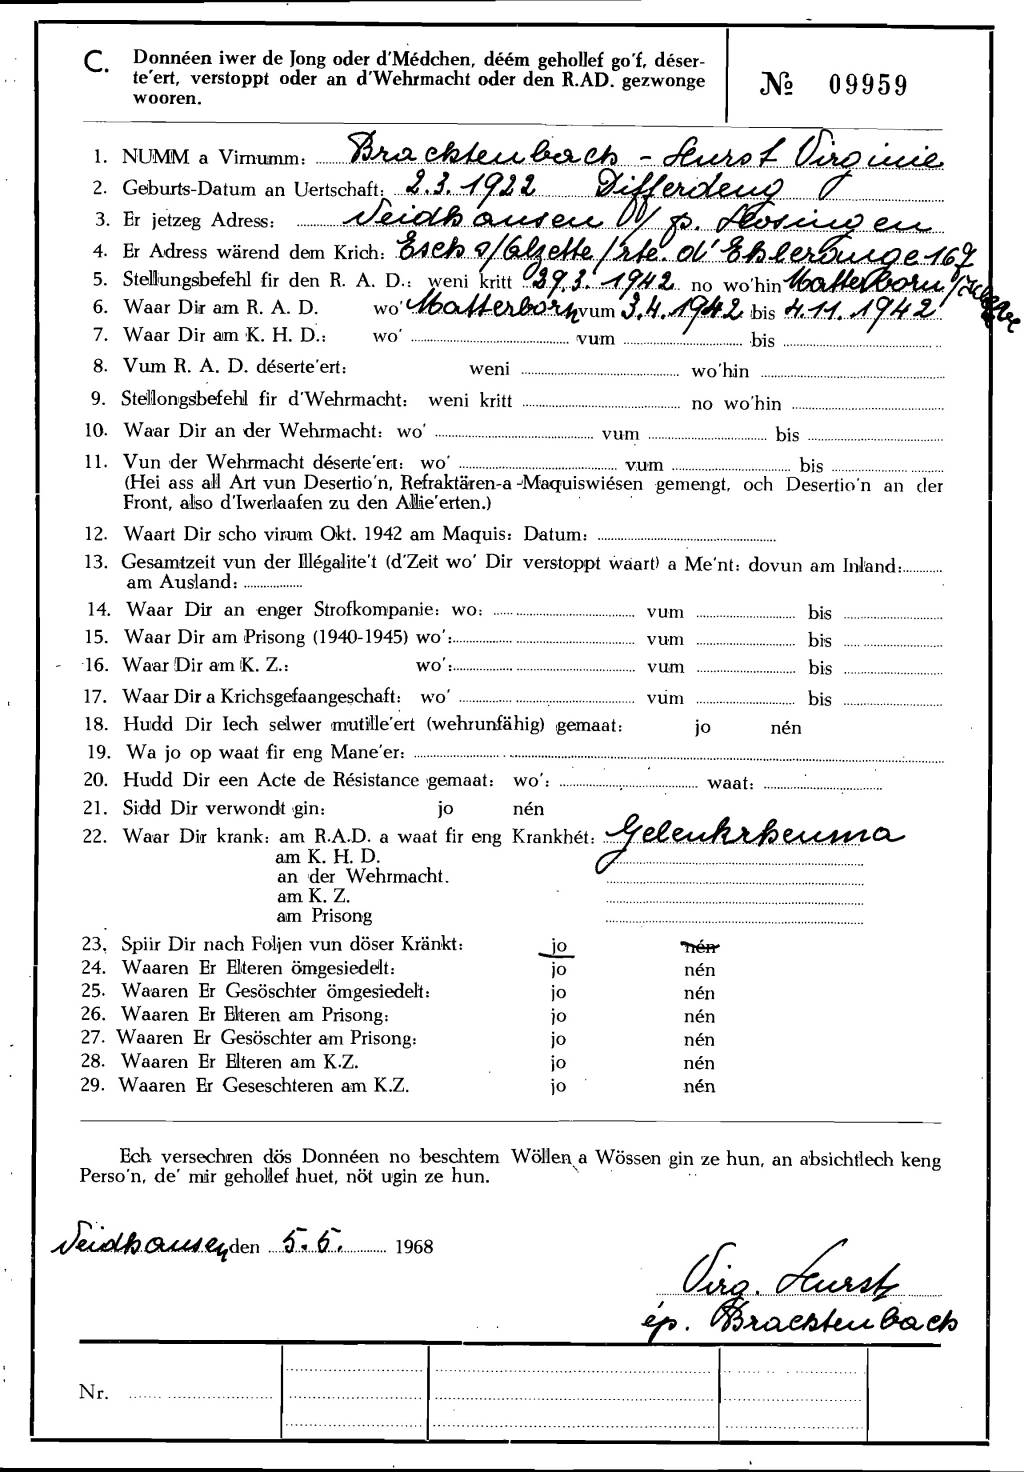 C. Donnéen iwer de Jong oder d'Médchen, déém gehollef go'f, déser-
te'ert, verstoppt oder an d'Wehrmacht oder den R.AD. gezwonge
wooren.
№ 09959
1. NUMM a Virnumm: Bracktenbach - Hurst Virginie
2. Geburts-Datum an Uertschaft: 2.3.1922 Differdeng
3. Er jetzeg Adress: Neidhausen p. Hosingen
4. Er Adress wärend dem Krich: Esch s/Alzette/rte. d'Ehlerange 167
5. Stellungsbefehl fir den R. A. D.: weni kritt 29.3.1942 no wo'hin Matterborn
6. Waar Dir am R. A. D. wo' Matterborn vum 3.4.1942 bis 4.11.1942
7. Waar Dir am K. H. D.: wo' vum bis
8. Vum R. A. D. déserte'ert: weni wo'hin
9. Stellongsbefehl fir d'Wehrmacht: weni kritt no wo'hin
10. Waar Dir an der Wehrmacht: wo' vum bis
11. Vun der Wehrmacht déserte'ert: wo' vum bis
(Hei ass all Art vun Desertio'n, Refraktären-a-Maquiswiésen gemengt, och Desertio'n an der
Front, also d'Iwerlaafen zu den Allie'erten.)
12. Waart Dir scho virum Okt. 1942 am Maquis: Datum:
13. Gesamtzeit vun der Illégalite't (d'Zeit wo' Dir verstoppt waart) a Me'nt: dovun am Inland:
am Ausland:
14. Waar Dir an enger Strofkompanie: wo: vum bis
15. Waar Dir am Prisong (1940-1945) wo': vum bis
16. Waar Dir am K. Z.: wo': vum bis
17. Waar Dir a Krichsgefaangeschaft: wo' vum bis
18. Hudd Dir Iech selwer mutille'ert (wehrunfähig) gemaat: jo nén
19. Wa jo op waat fir eng Mane'er:
20. Hudd Dir een Acte de Résistance gemaat: wo': waat:
21. Sidd Dir verwondt gin: jo nén
22. Waar Dir krank: am R.A.D. a waat fir eng Krankhét: Gelenkrheuma
am K. H. D.
an der Wehrmacht.
am K. Z.
am Prisong
23. Spiir Dir nach Foljen vun döser Kränkt: jo nén
24. Waaren Er Elteren ömgesiedelt: jo nén
25. Waaren Er Gesöschter ömgesiedelt: jo nén
26. Waaren Er Elteren am Prisong: jo nén
27. Waaren Er Gesöschter am Prisong: jo nén
28. Waaren Er Elteren am K.Z. jo nén
29. Waaren Er Geseschteren am K.Z. jo nén
Ech versechren dös Donnéen no beschtem Wöllen a Wössen gin ze hun, an absichtlech keng
Perso'n, de' mir gehollef huet, nöt ugin ze hun.
Neidhausen, den 5.5. 1968
Virg. Hurst
ép. Bracktenbach
Nr.